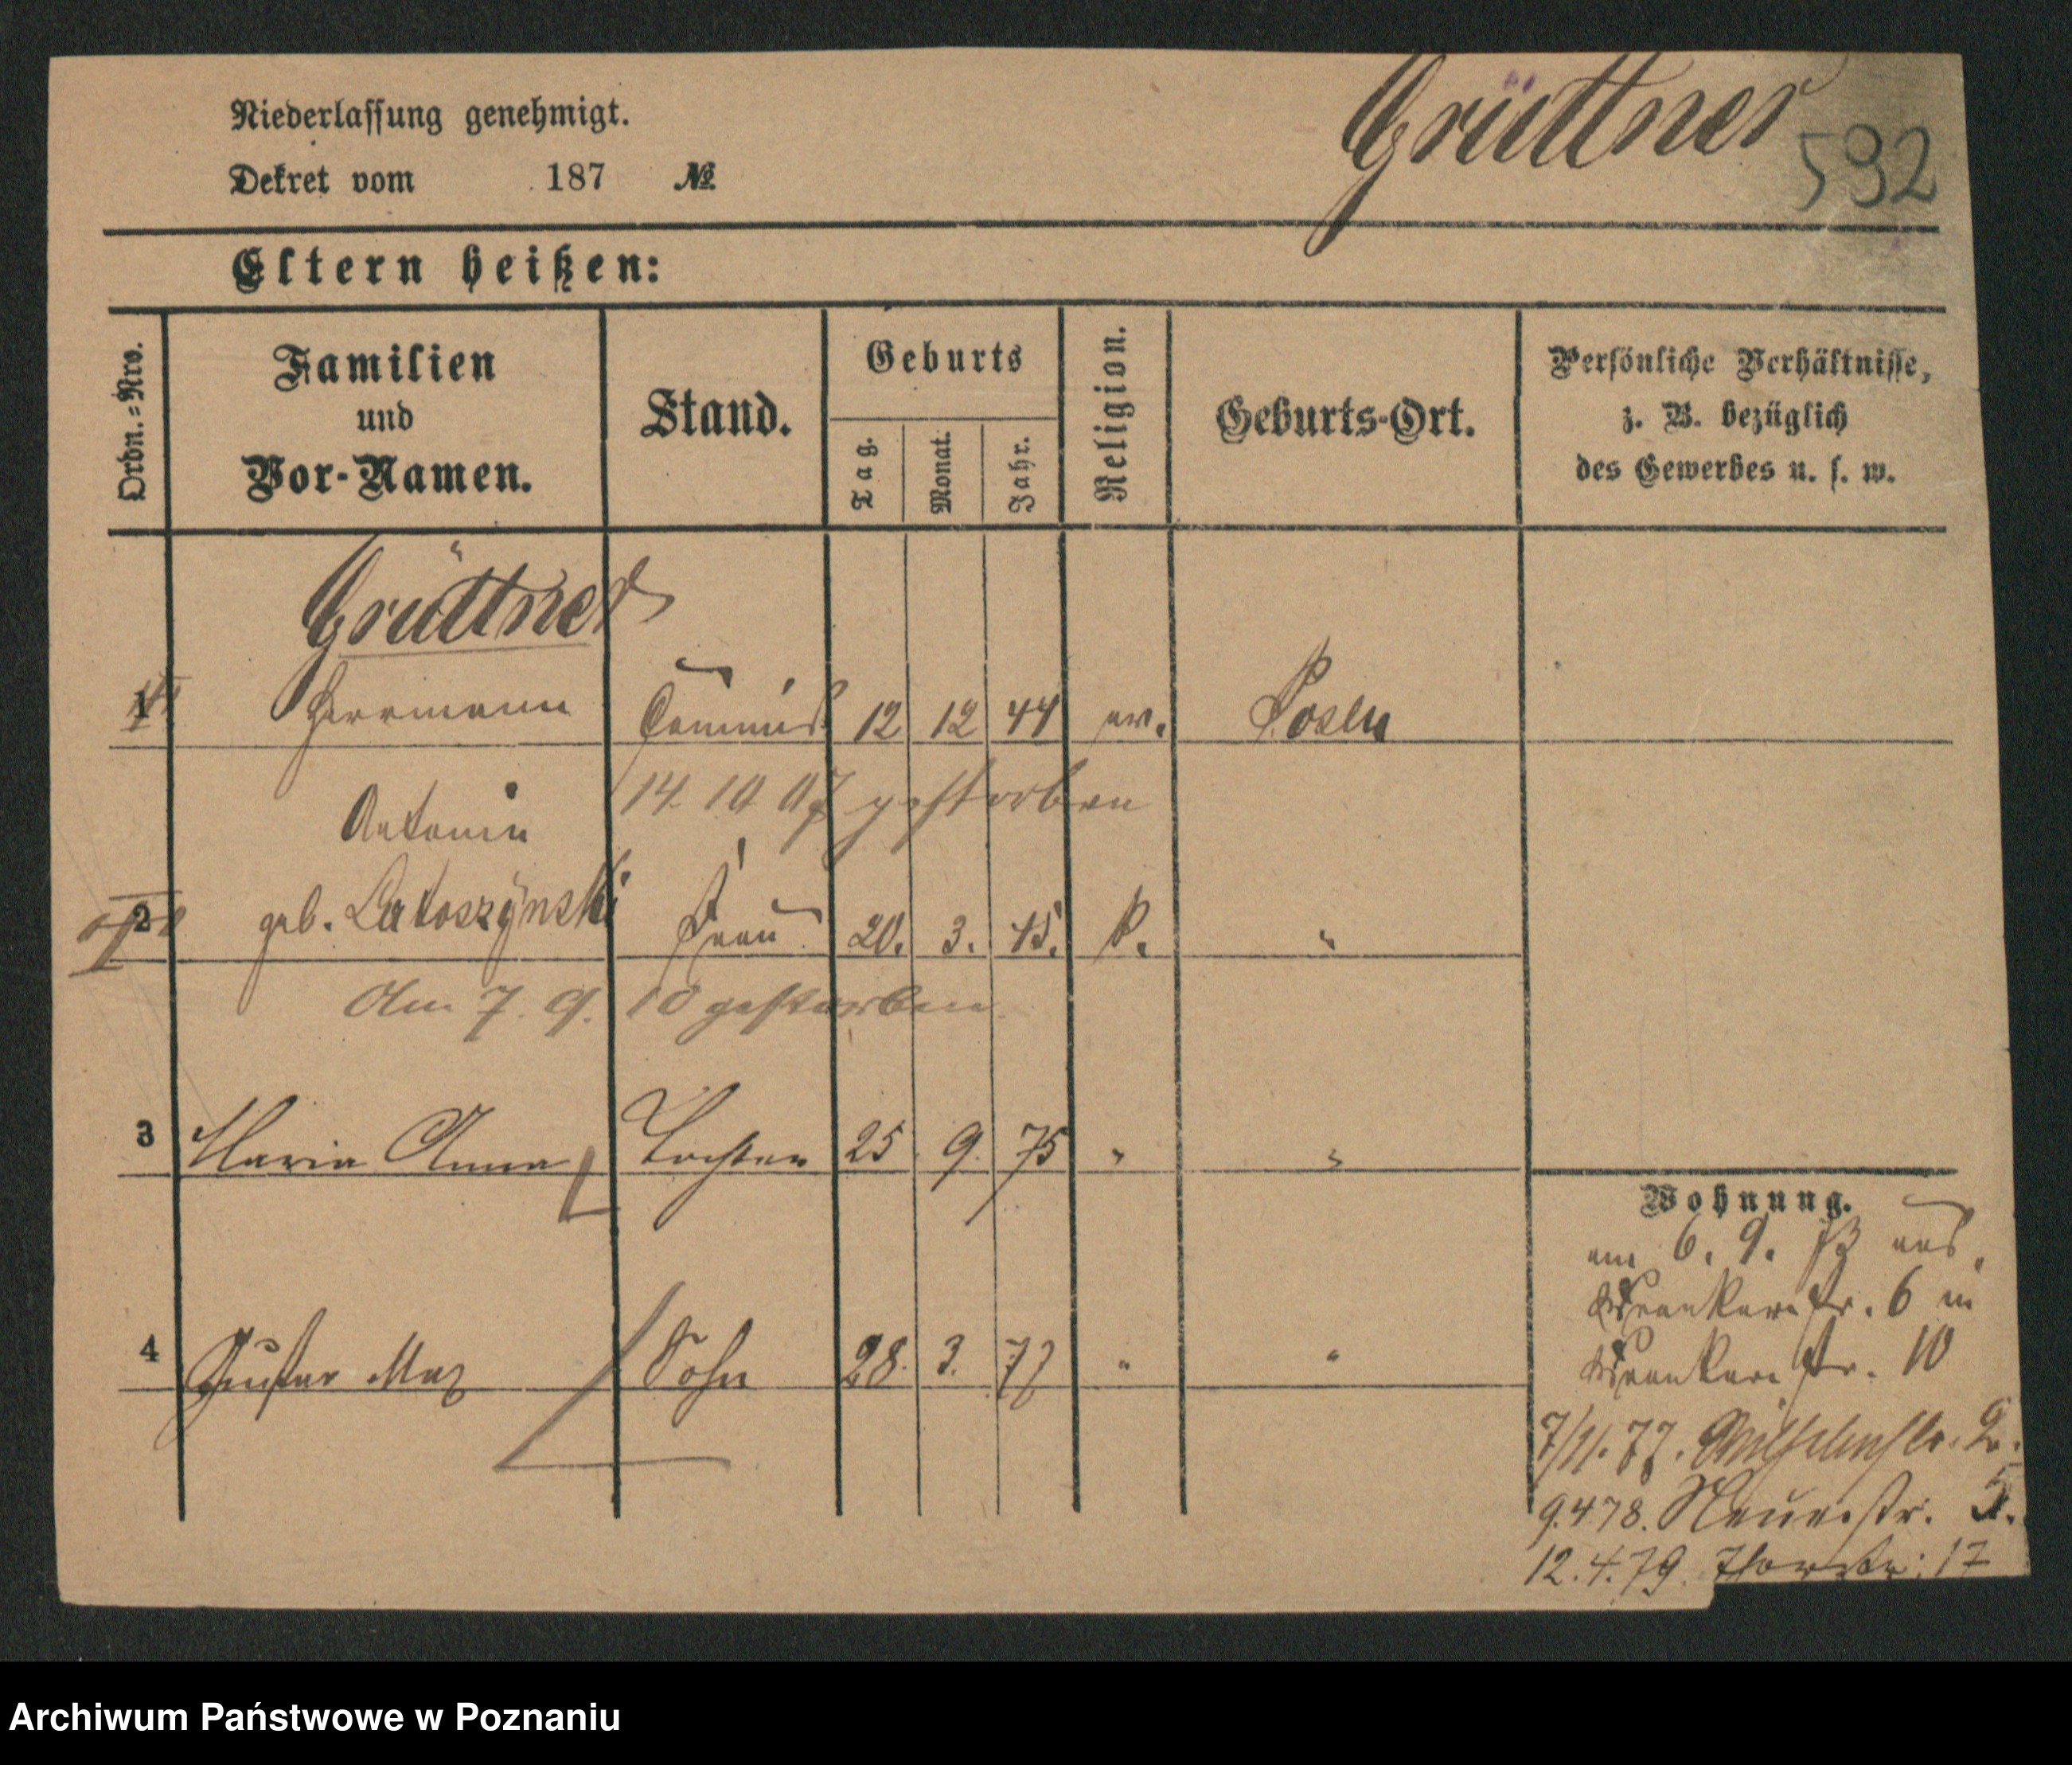 Grüttner
592
Niederlassung genehmigt.
Dekret vom 187 №
Eltern heißen:
Ordn.=Nro.
Familien
und
Vor-Namen.
Stand.
Geburts
Tag.
Monat.
Jahr.
Religion.
Geburts-Ort.
Persönliche Verhältnisse,
z. B. bezüglich
des Gewerbes u. s. w.
Grüttner
1 Herrmann Commis 12 12 44 ev. Posen
14. 10 07 gestorben
Antonie
2 geb. Latoszynski Frau 20. 3. 45. k. "
Am 7. 9. 10 gestorben
3 Maria Anna Tochter 25 9. 75 " "
4 Gustav Max Sohn 28. 3. 77 " "
Wohnung.
am 6. 9. aus
str. 6 in
str. 10
7/11. 77. Wilhelmstr. 2.
9.4.78. Neuestr. 5.
12.4.79. 17
Archiwum Państwowe w Poznaniu